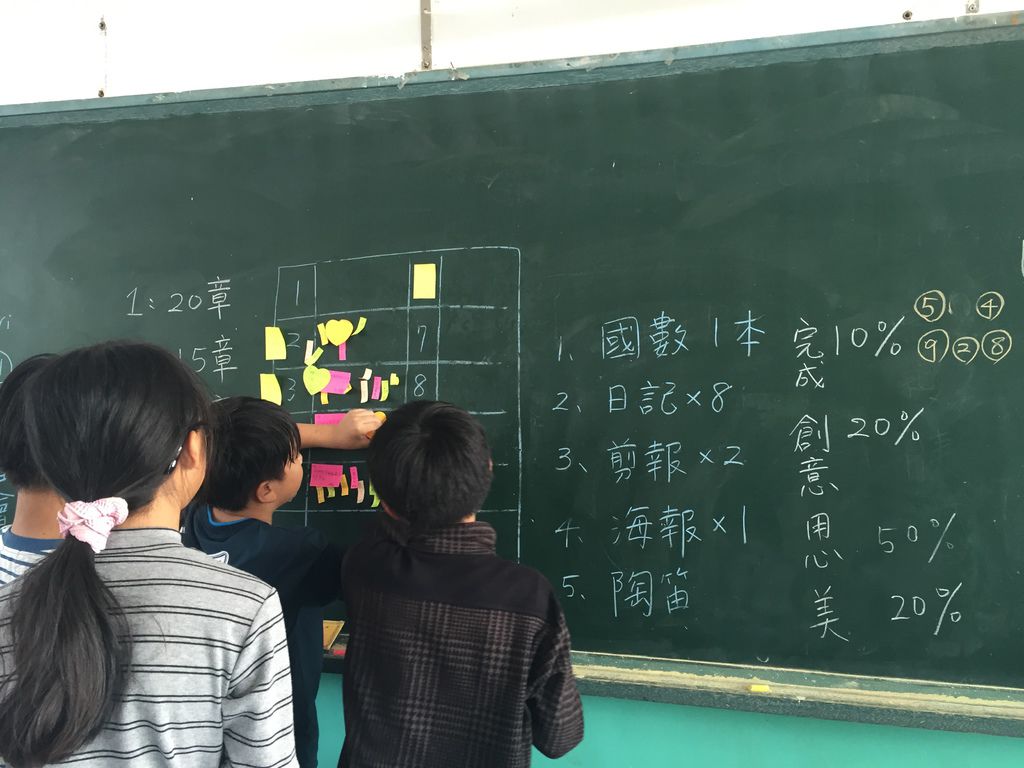 1：20章
15章
1
2
7
3
8
1、國數1本
2、日記×8
3、剪報×2
4、海報×1
5、陶笛
完成10%
創意20%
用心50%
美20%
⑤ ④
⑨ ② ⑧